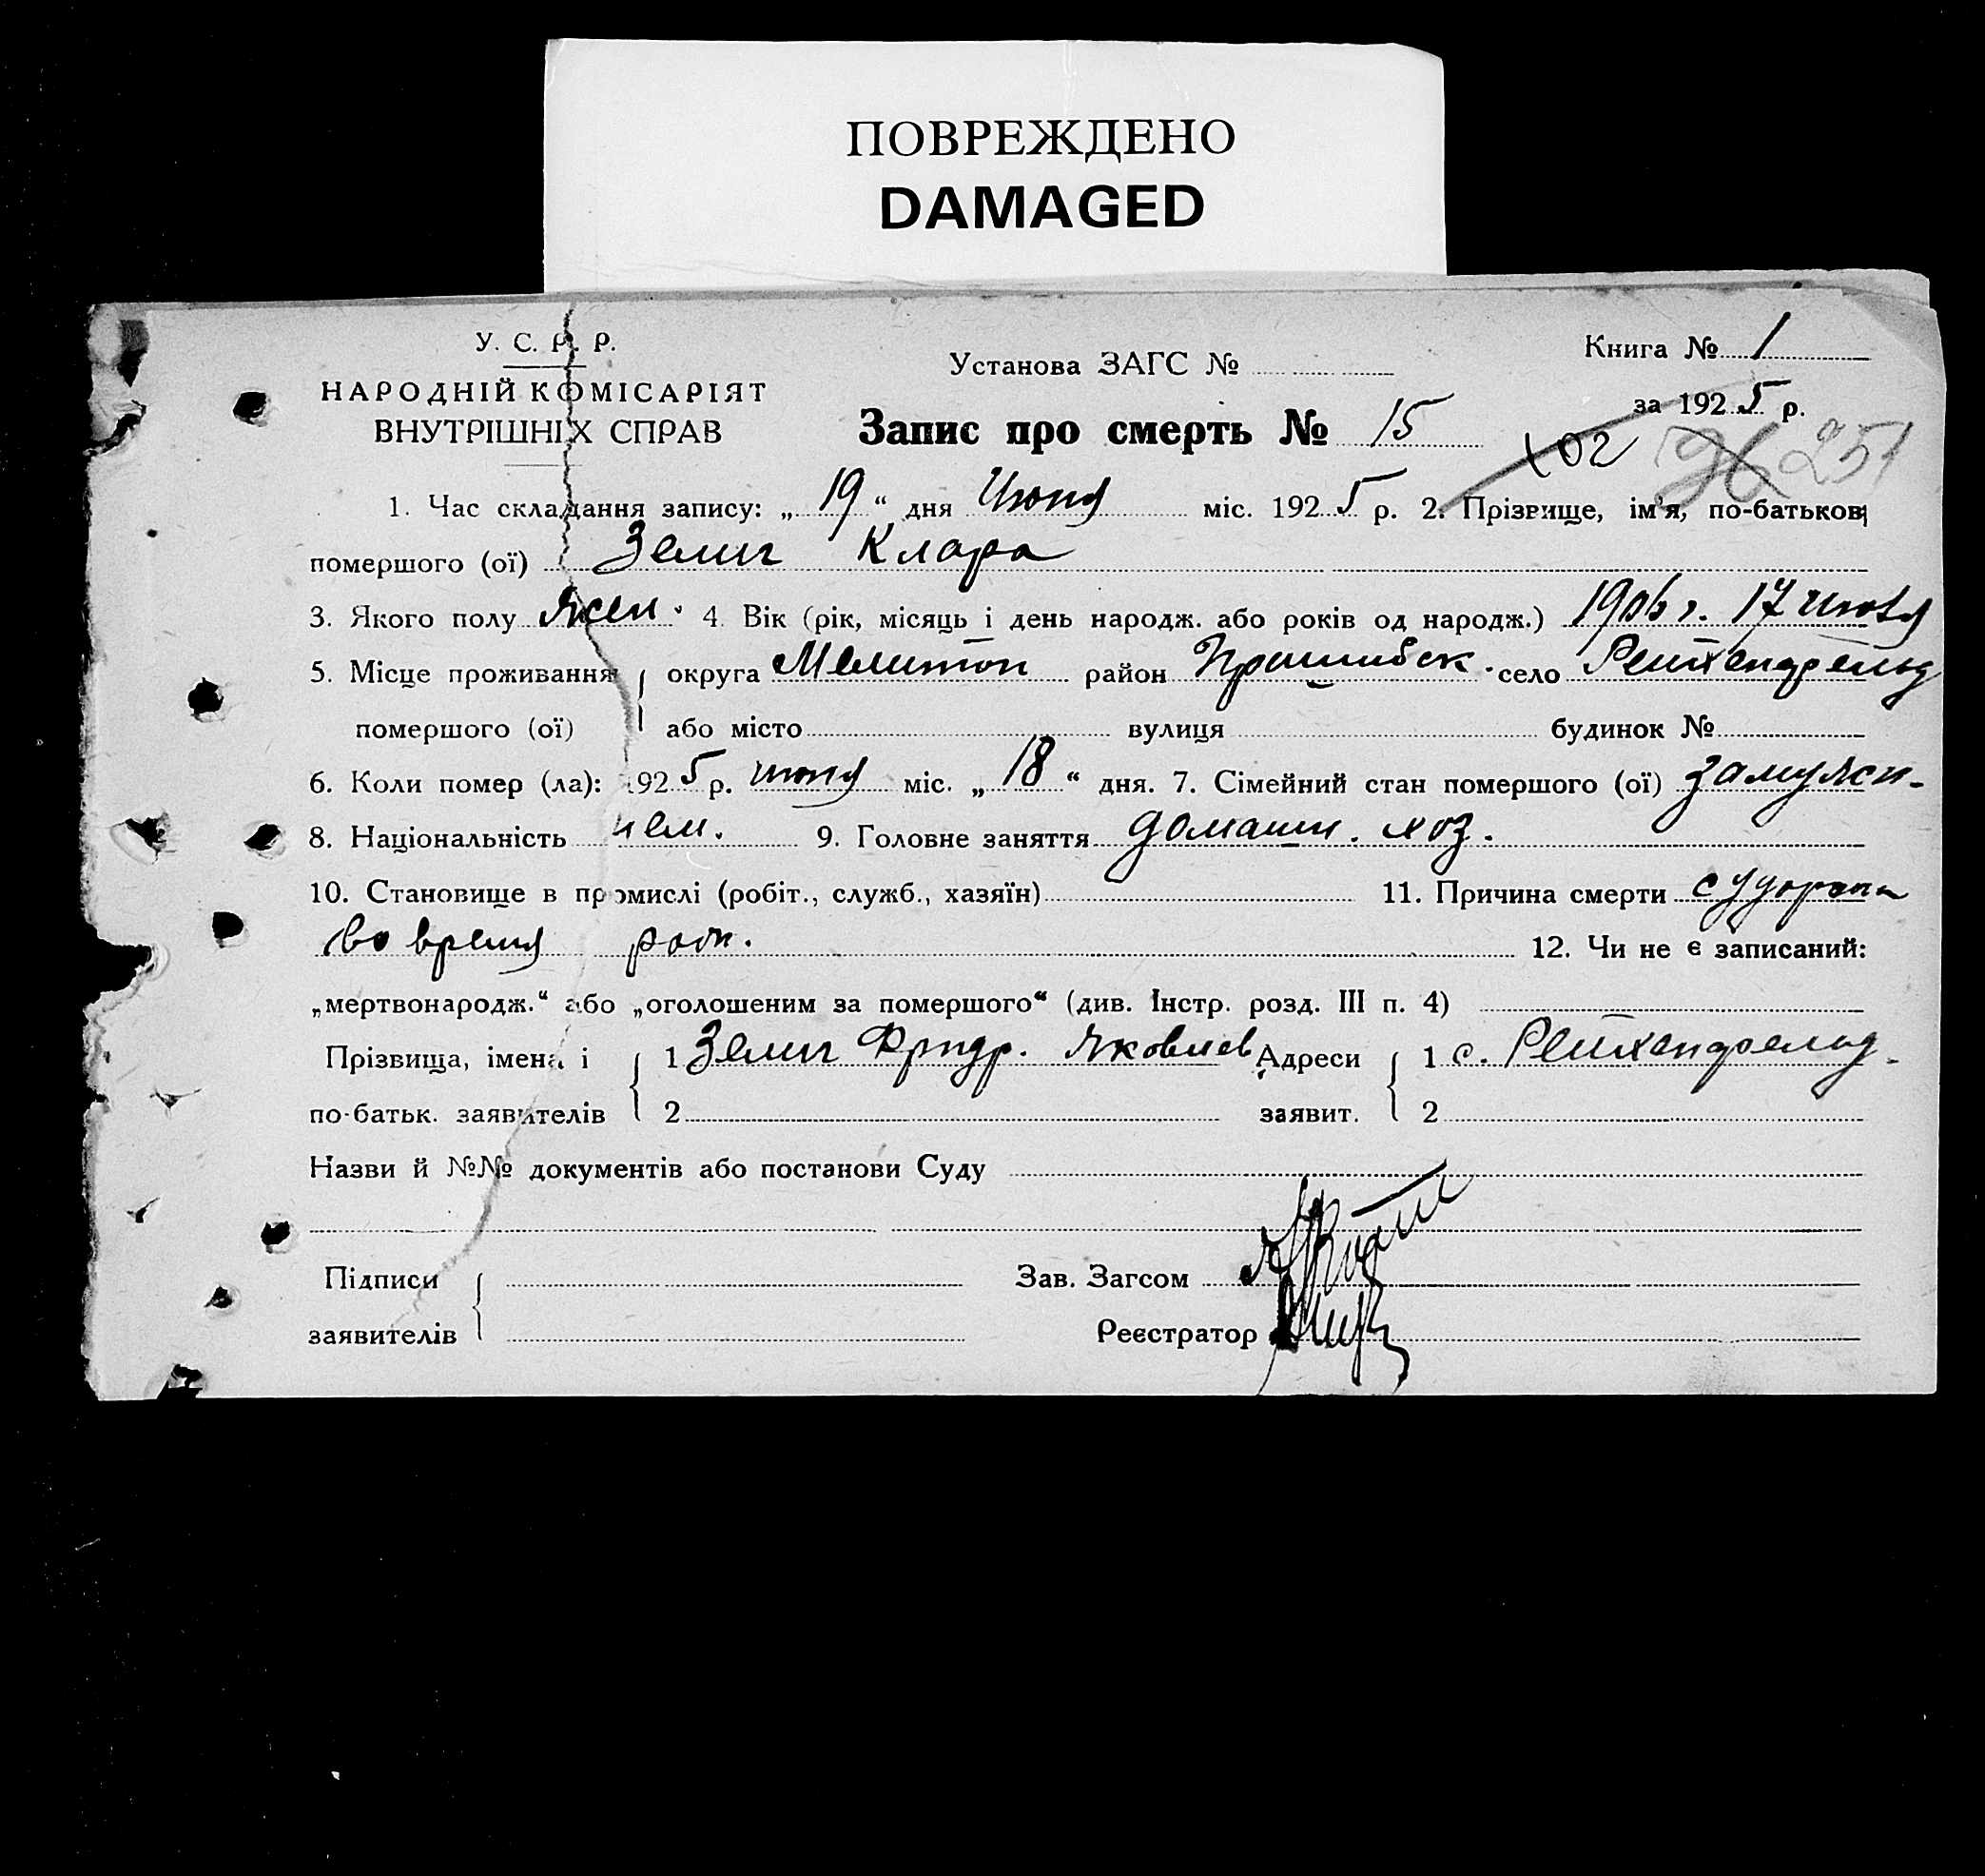 ПОВРЕЖДЕНО
DAMAGED
У. С. Р. Р.
НАРОДНІЙ КОМІСАРІЯТ
ВНУТРІШНІХ СПРАВ
Установа ЗАГС №
Книга № 1
за 1925 р.
Запис про смерть № 15
102 96 251
1. Час складання запису: „ 19 “ дня Июня міс. 1925 р. 2. Прізвище, ім'я, по-батькові
помершого (ої) Зелиг Клара
3. Якого полу жен. 4 Вік (рік, місяць і день народж. або років од народж.) 1906 г. 17 июля
5. Місце проживання округа Мелитоп район Пришибск. село Рейхенфельд
помершого (ої) або місто вулиця будинок №
6. Коли помер (ла): 1925 р. июня міс. „ 18 “ дня. 7. Сімейний стан помершого (ої) замужн-
8. Національність нем. 9. Головне заняття домашн. хоз.
10. Становище в промислі (робіт., служб., хазяїн) 11. Причина смерти судороги
во время род. 12. Чи не є записаний:
„мертвонародж.“ або „оголошеним за помершого“ (див. Інстр. розд. III п. 4)
Прізвища, імена і 1 Зелиг Фридр. Яковлев Адреси 1 с. Рейхенфельд.
по-батьк. заявителів 2 заявит. 2
Назви й №№ документів або постанови Суду
Підписи Зав. Загсом
заявителів Реєстратор